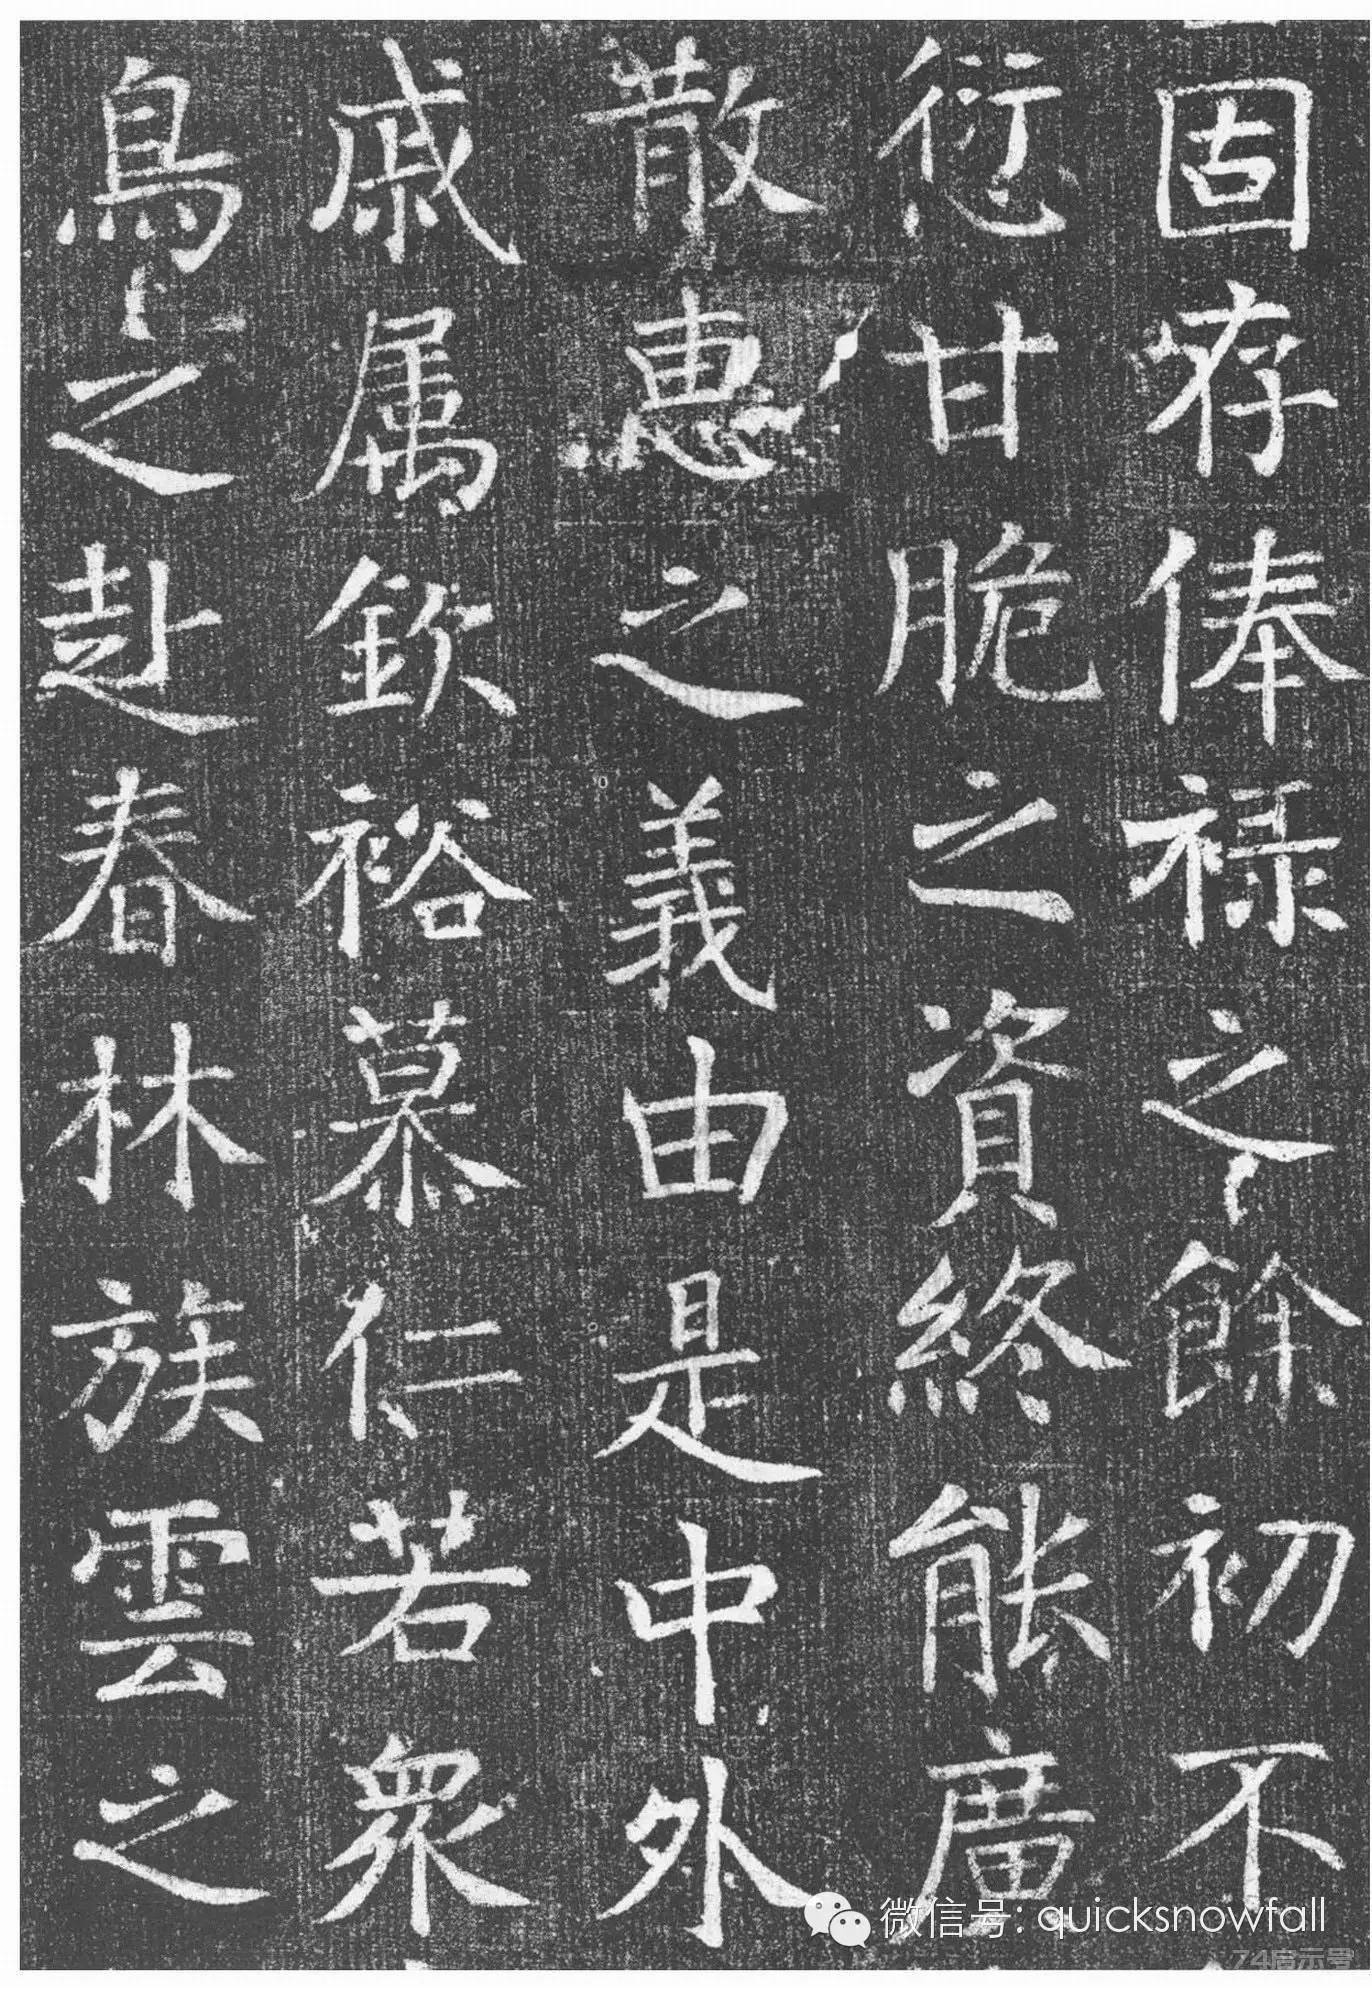 固存俸禄之餘初不
愆甘脆之資終能廣
散惠之義由是中外
戚属欽裕慕仁若衆
鳥之赴春林族雲之
微信号: quicksnowfall